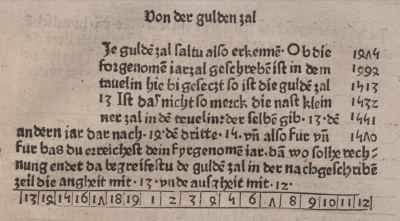 Von der gulden zal
Je guldē zal saltu also erkennē· Ob die 1475
forgenomē iarzal geschrebē ist in dem 1494
tauelin hie bi geseczt so ist die guldē zal 1513
13 Ist das nicht so merck die nast klein 1532
ner zal in dē teuelin: der selbē gib ·13· dē 1551
andern iar dar nach ·14· dē dritte ·15· vn̄ also fur vn̄ 1570
fur bas du erreichest dein fyrgenomē iar· dan̄ wo solhe rech-
nung endet da begreifestu dē guldē zal in der nachgeschribē
zeil die angheit mit ·13· vnde aufzheit mit ·12·
13 14 15 16 17 18 19 1 2 3 4 5 6 7 8 9 10 11 12